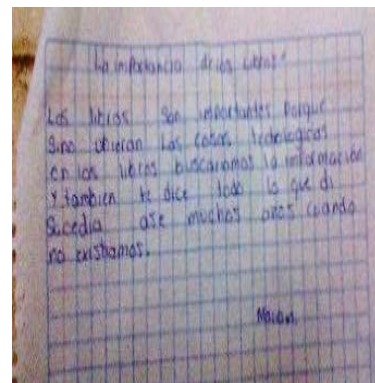 La importancia de los libros"
Los libros son importantes porque
Sino ubieran las cosas tecnologicas
en los libros buscariamos la información
Y tambien te dice todo lo que
Sucedia ase muchos años cuando
no existiamos.